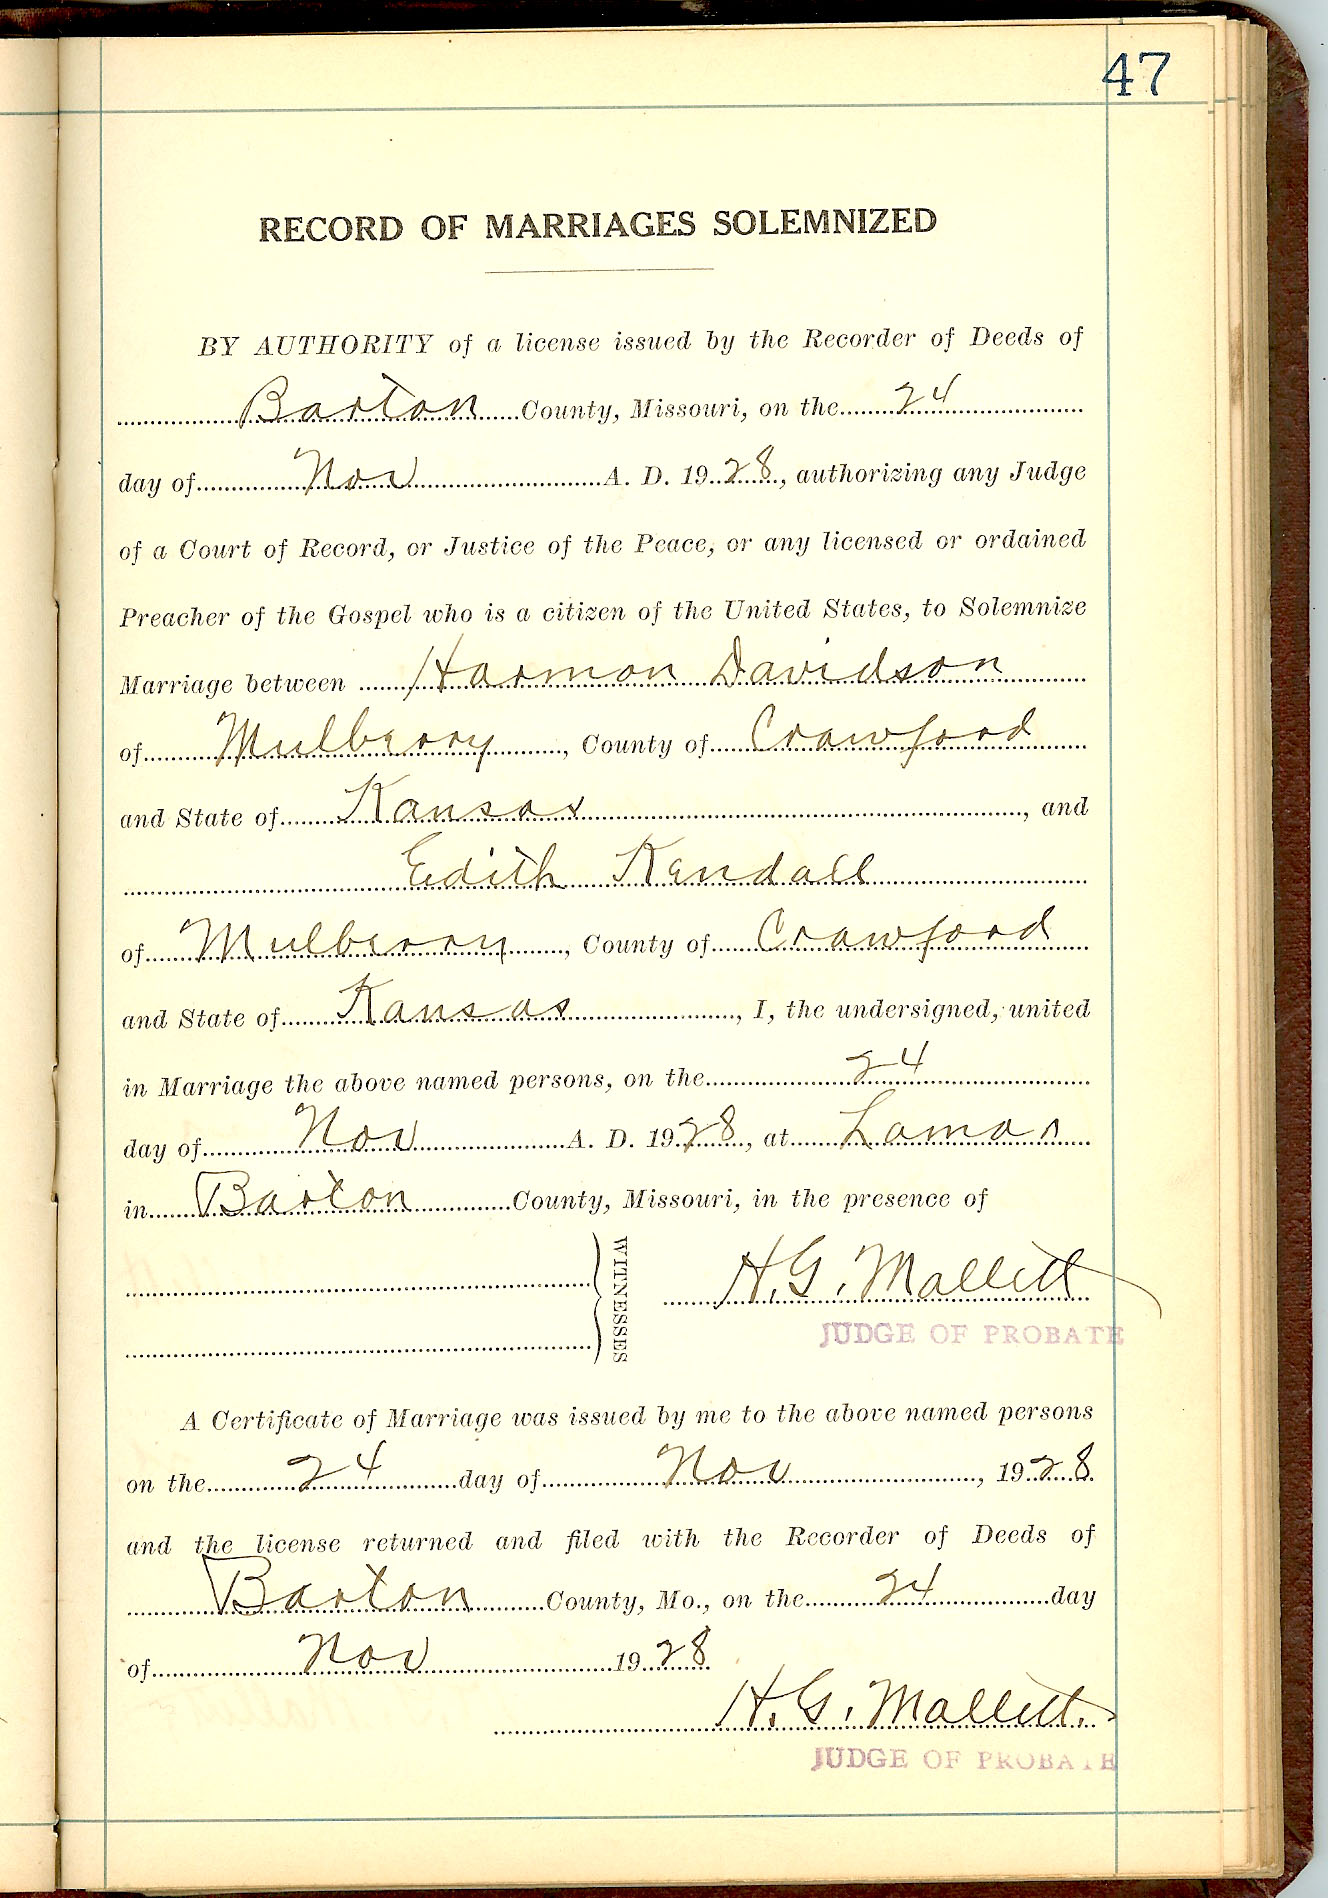 47
RECORD OF MARRIAGES SOLEMNIZED
BY AUTHORITY of a license issued by the Recorder of Deeds of
Barton County, Missouri, on the 24
day of Nov A. D. 1928, authorizing any Judge
of a Court of Record, or Justice of the Peace, or any licensed or ordained
Preacher of the Gospel who is a citizen of the United States, to Solemnize
Marriage between Harmon Davidson
of Mulberry, County of Crawford
and State of Kansas, and
Edith Kendall
of Mulberry, County of Crawford
and State of Kansas, I, the undersigned, united
in Marriage the above named persons, on the 24
day of Nov A. D. 1928, at Lamar
in Barton County, Missouri, in the presence of
WITNESSES
H. G. Mallett
JUDGE OF PROBATE
A Certificate of Marriage was issued by me to the above named persons
on the 24 day of Nov, 1928
and the license returned and filed with the Recorder of Deeds of
Barton County, Mo., on the 24 day
of Nov 1928
H. G. Mallett.
JUDGE OF PROBATE